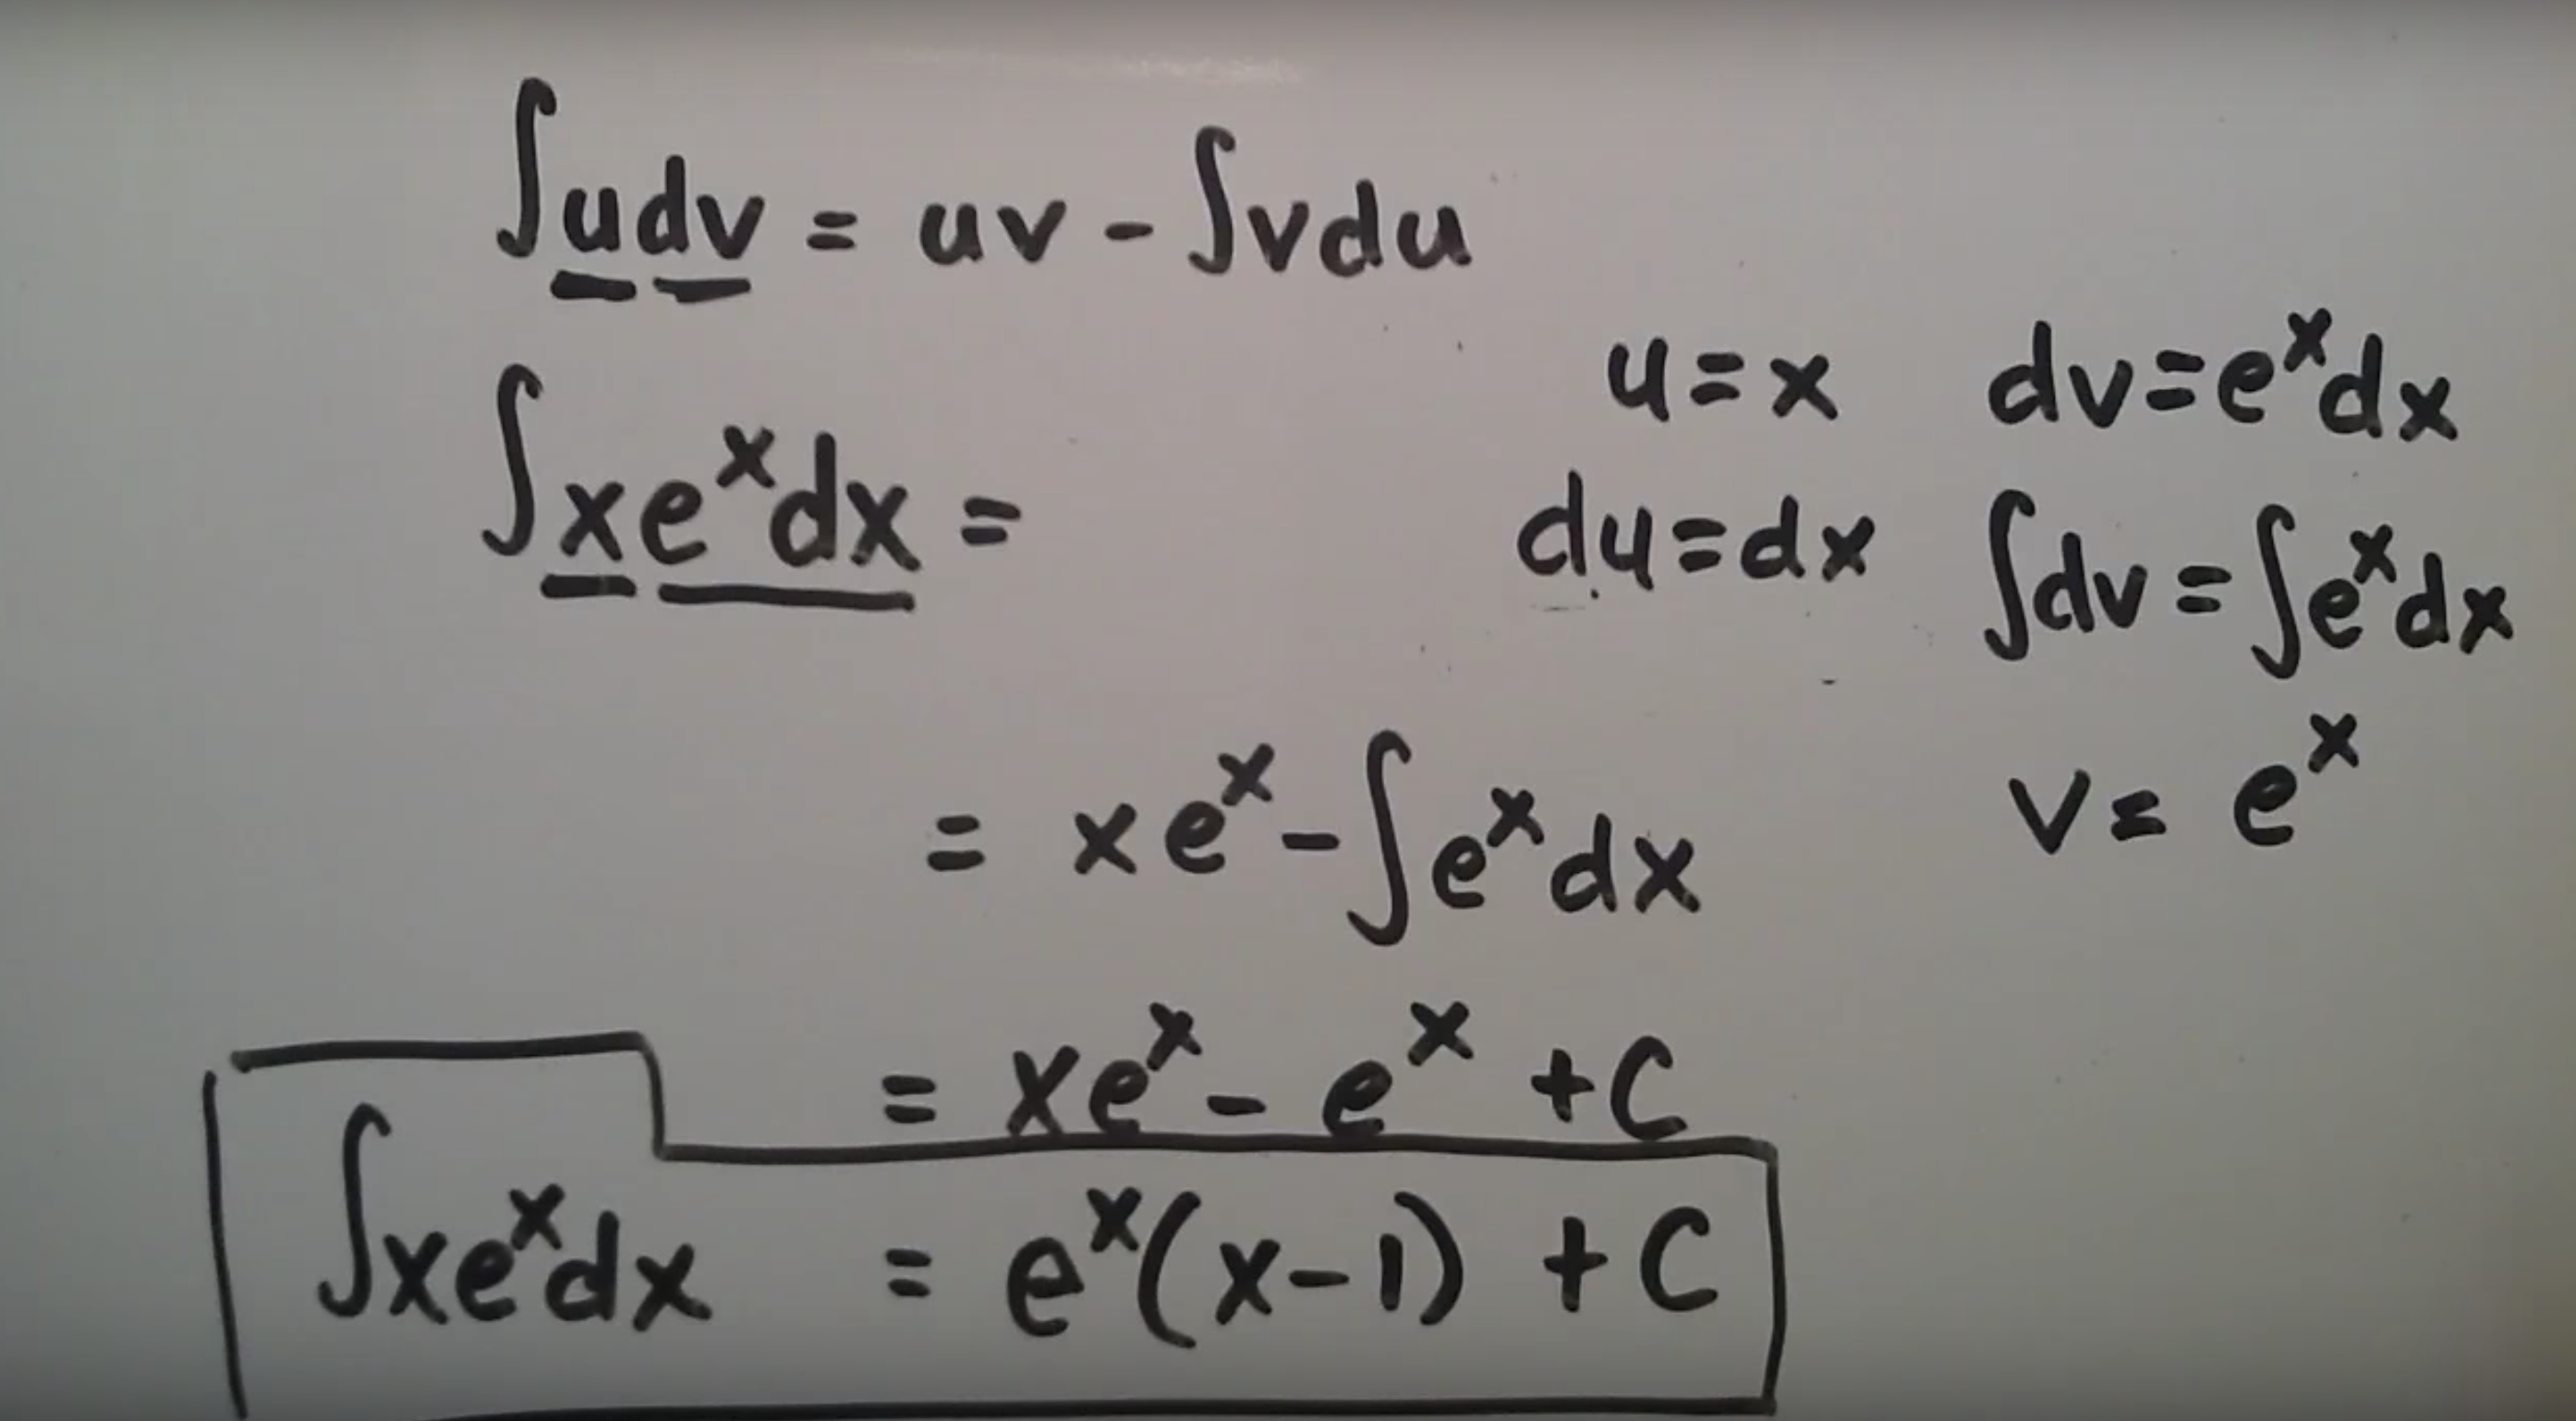 ∫udv = uv - ∫vdu
u=x dv=eˣdx
∫xeˣdx =
du=dx ∫dv=∫eˣdx
v= eˣ
= xeˣ-∫eˣdx
= xeˣ- eˣ +C
∫xeˣdx = eˣ(x-1) +C